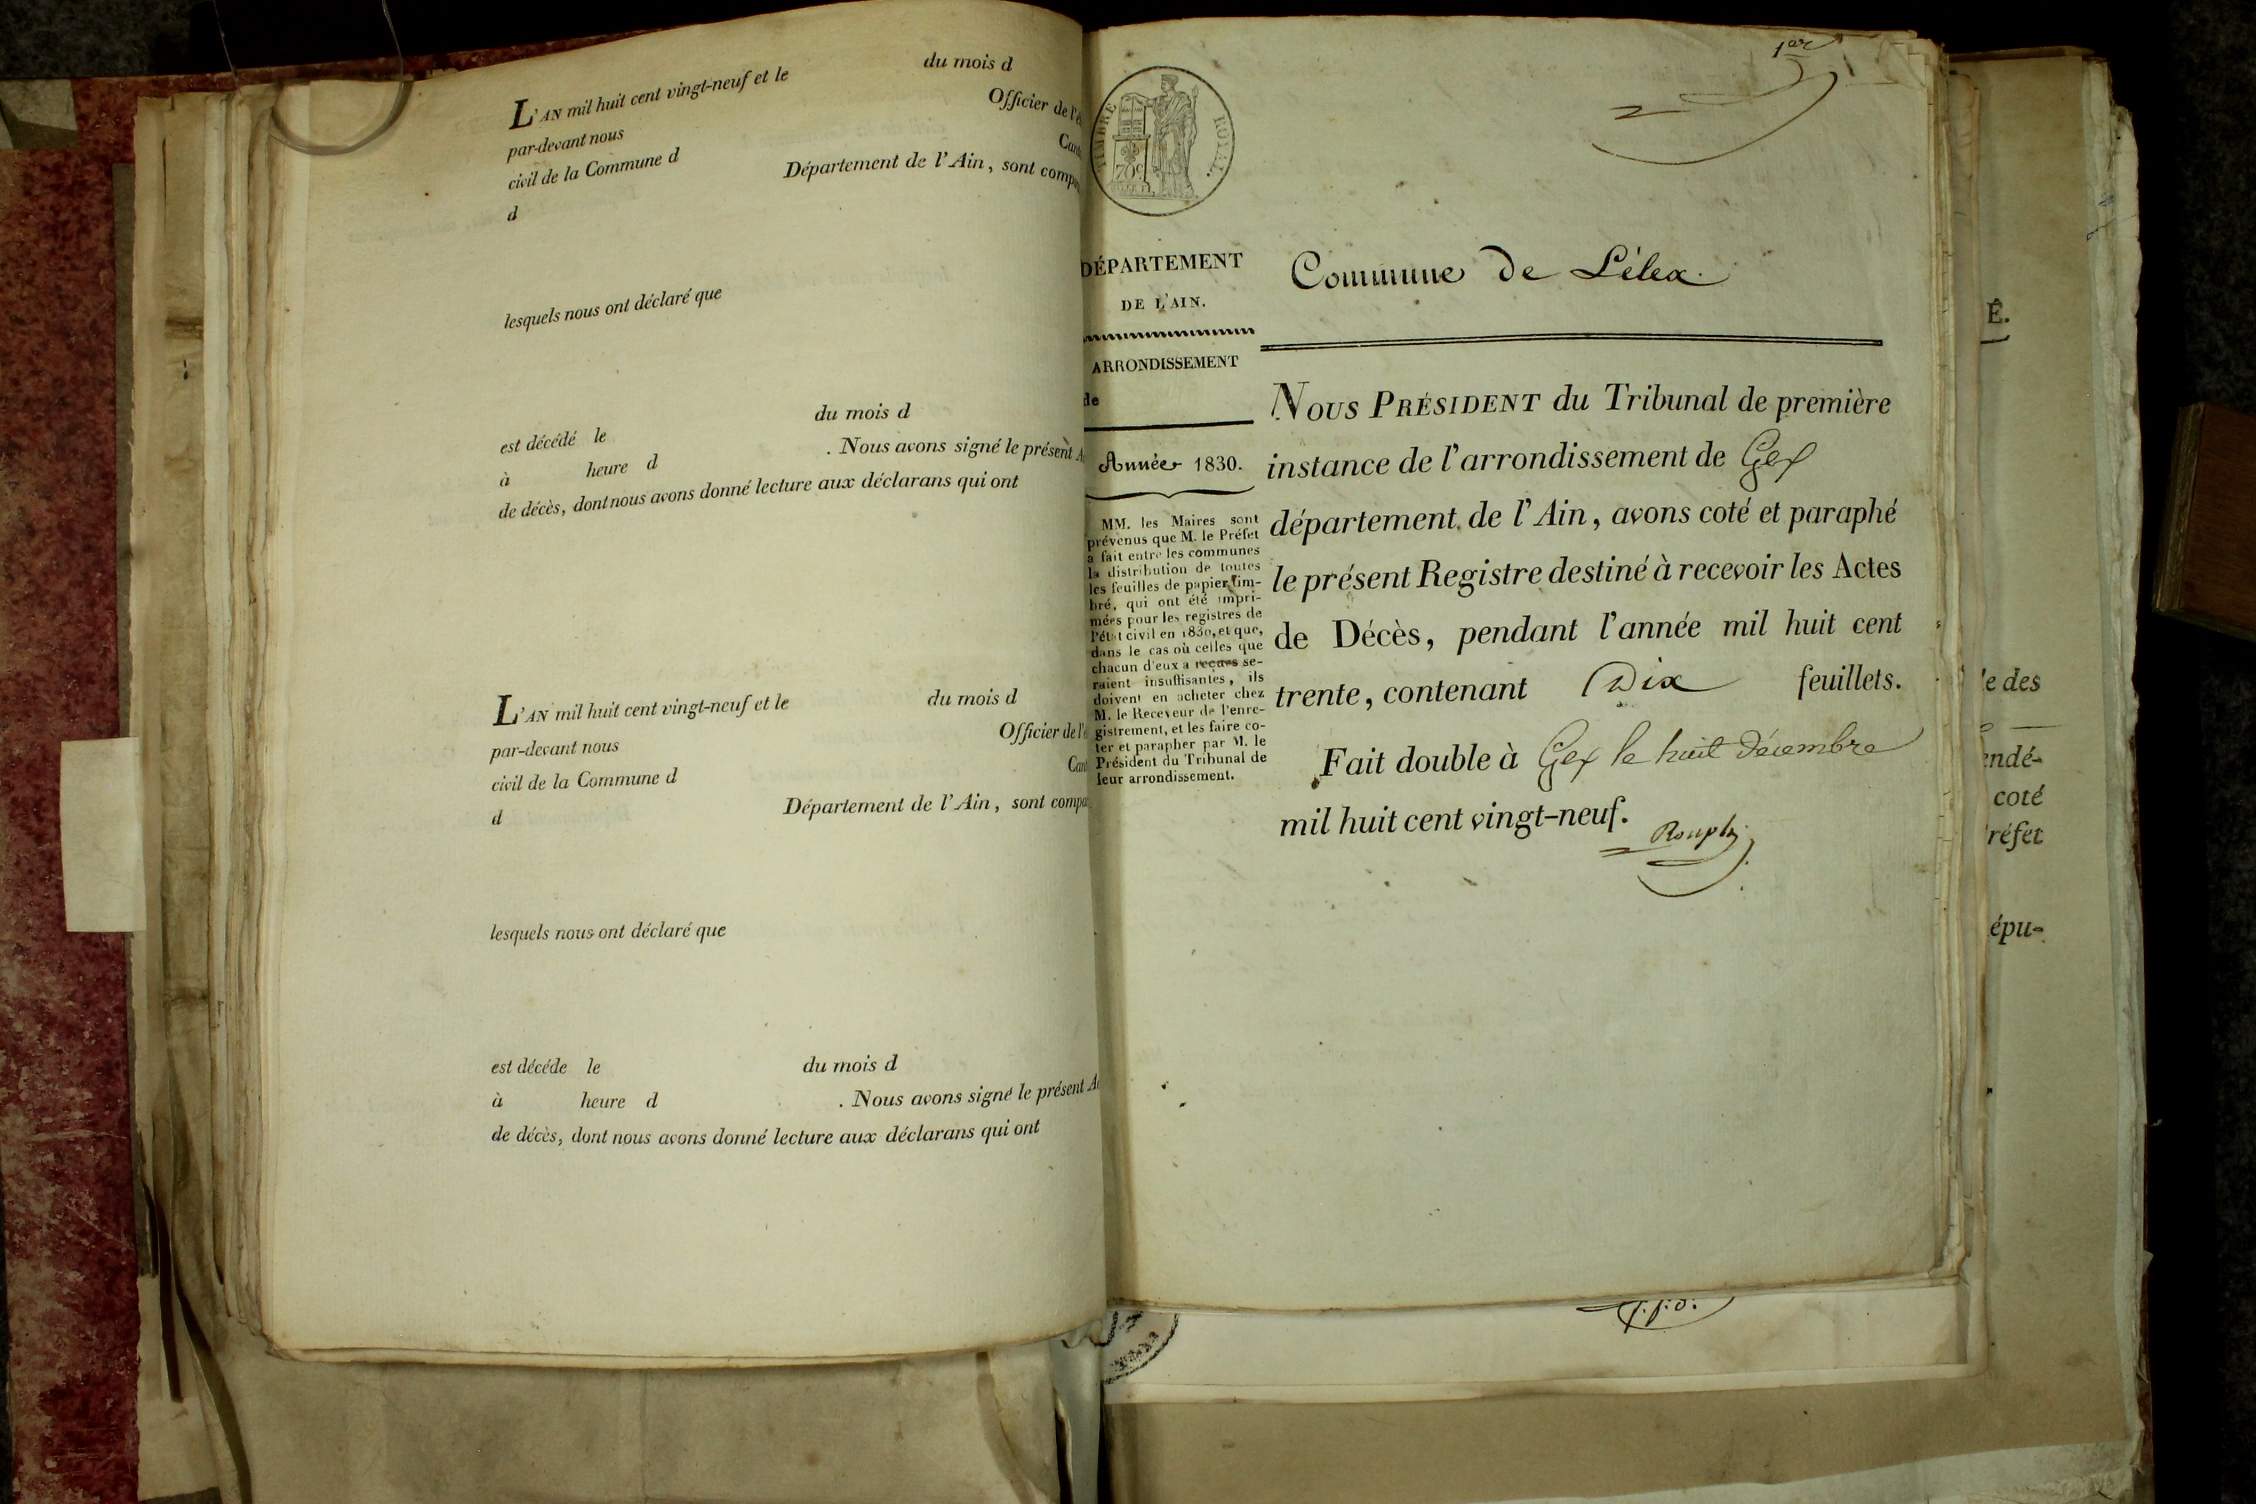 L'AN mil huit cent vingt-neuf et le du mois d
par-devant nous Officier de l'é
civil de la Commune d Can
d Département de l'Ain, sont comp
lesquels nous ont déclaré que
est décédé le du mois d
à heure d . Nous avons signé le présent A
de décès, dont nous avons donné lecture aux déclarans qui ont
L'AN mil huit cent vingt-neuf et le du mois d
par-devant nous Officier de l'
civil de la Commune d Can
d Département de l'Ain, sont compa
lesquels nous ont déclaré que
est décéde le du mois d
à heure d . Nous avons signé le présent A
de décès, dont nous avons donné lecture aux déclarans qui ont
1er
TIMBRE ROYAL.
70c
DÉPARTEMENT
DE L'AIN.
ARRONDISSEMENT
de
Année 1830.
MM. les Maires sont
prévenus que M. le Préfet
a fait entre les communes
la distribution de toutes
les feuilles de papier tim-
bré, qui ont été impri-
mées pour les registres de
l'état civil en 1830, et que,
dans le cas où celles que
chacun d'eux a reçues se-
raient insuffisantes, ils
doivent en acheter chez
M. le Receveur de l'enre-
gistrement, et les faire co-
ter et parapher par M. le
Président du Tribunal de
leur arrondissement.
Commune de Lélex.
NOUS PRÉSIDENT du Tribunal de première
instance de l'arrondissement de Gex
département de l'Ain, avons coté et paraphé
le présent Registre destiné à recevoir les Actes
de Décès, pendant l'année mil huit cent
trente, contenant Dix feuillets.
Fait double à Gex le huit décembre
mil huit cent vingt-neuf.
É.
e des
endé-
coté
réfet
épu-